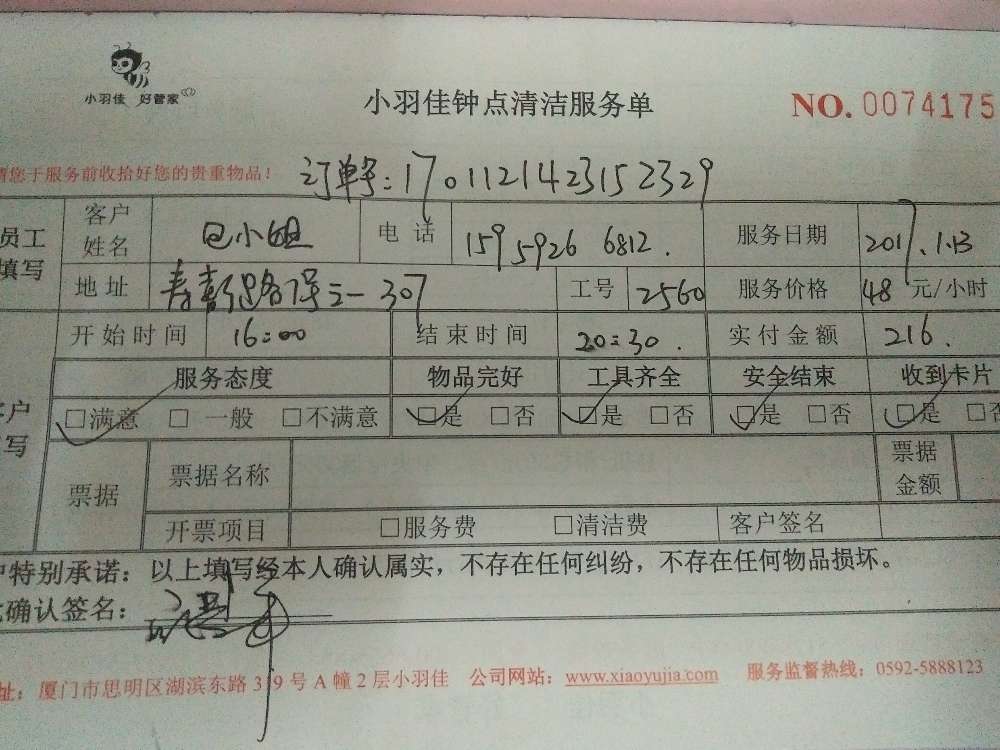 小羽佳 好管家
小羽佳钟点清洁服务单
NO. 0074175
请您于服务前收拾好您的贵重物品!
订单号:1701121423152329
员工填写 客户姓名 包小姐 电话 159 5926 6812. 服务日期 2017.1.13
地址 307 工号 2560 服务价格 48 元/小时
开始时间 16:00 结束时间 20:30. 实付金额 216.
客户填写 服务态度 物品完好 工具齐全 安全结束 收到卡片
□满意 □一般 □不满意 □是 □否 □是 □否 □是 □否 □是 □否
票据 票据名称 票据金额
开票项目 □服务费 □清洁费 客户签名
户特别承诺:以上填写经本人确认属实,不存在任何纠纷,不存在任何物品损坏。
确认签名:
址:厦门市思明区湖滨东路319号A幢2层小羽佳 公司网站:www.xiaoyujia.com 服务监督热线:0592-5888123